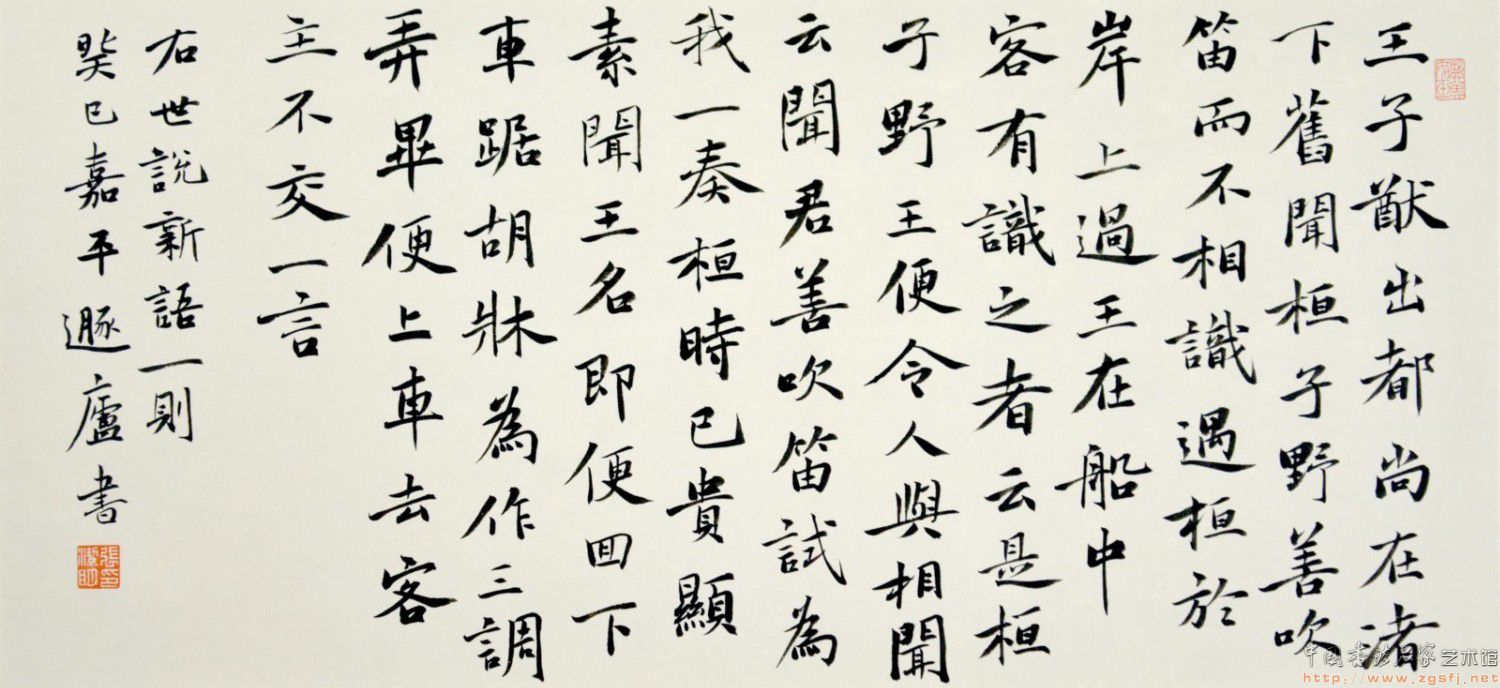 王子猷出都尚在渚
下舊聞桓子野善吹
笛而不相識遇桓於
岸上過王在船中
客有識之者云是桓
子野王便令人與相聞
云聞君善吹笛試為
我一奏桓時已貴顯
素聞王名即便回下
車踞胡牀為作三調
弄畢便上車去客
主不交一言
右世說新語一則
癸巳嘉平遯廬書
中国书法大家艺术馆
http://www.zgsfj.net